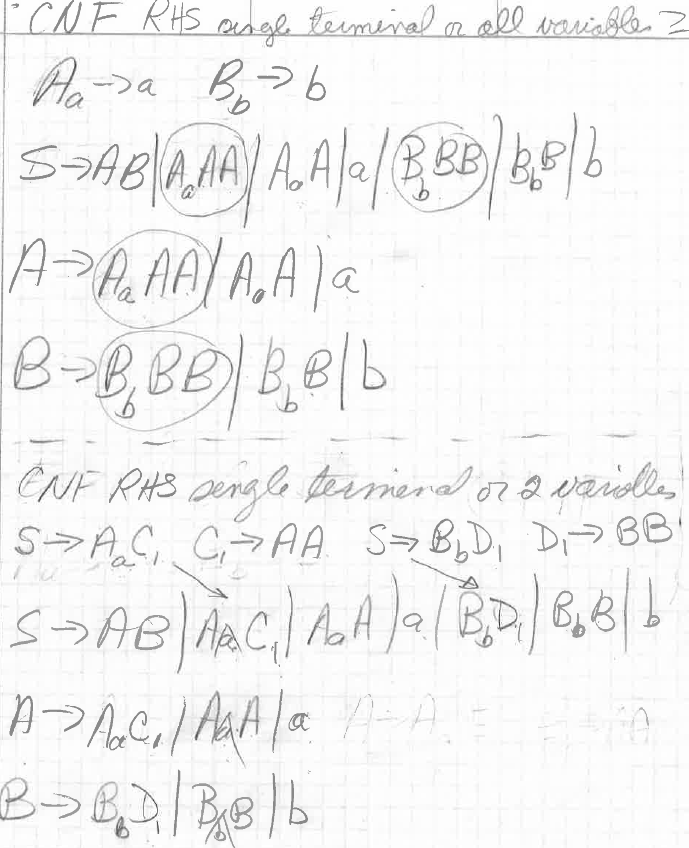 CNF RHS single terminal or all variables ≥
A_a → a B_b → b
S → AB | A_aAA | A_aA | a | B_bBB | B_bB | b
A → A_aAA | A_aA | a
B → B_bBB | B_bB | b
CNF RHS single terminal or 2 variables
S → A_aC₁ C₁ → AA S → B_bD₁ D₁ → BB
S → AB | A_aC₁ | A_aA | a | B_bD₁ | B_bB | b
A → A_aC₁ | A_aA | a
B → B_bD₁ | B_bB | b